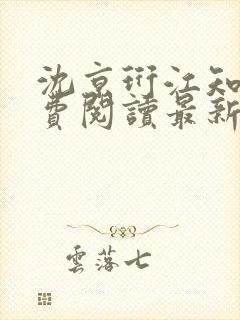 沈京衍江知
費閱讀最新
雲落七